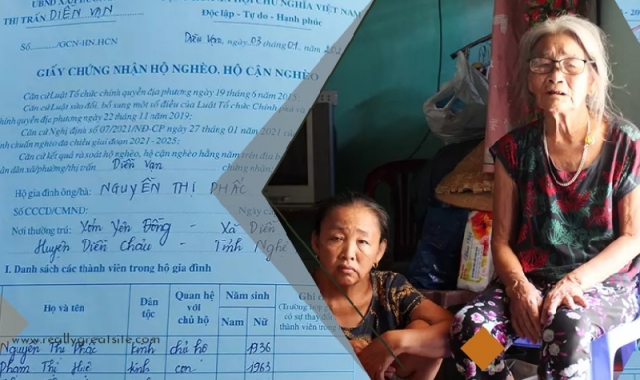 UBND XÃ
HỘI CHỦ NGHĨA VIỆT NAM
THỊ TRẤN DIỄN VẠN
Độc lập - Tự do - Hạnh phúc
Số /GCN-HN.HCN
Diễn Vạn, ngày 03 tháng 01 năm
GIẤY CHỨNG NHẬN HỘ NGHÈO, HỘ CẬN NGHÈO
Căn cứ Luật Tổ chức chính quyền địa phương ngày 19 tháng 6 năm 2015;
Căn cứ Luật sửa đổi, bổ sung một số điều của Luật Tổ chức Chính phủ và
chính quyền địa phương ngày 22 tháng 11 năm 2019;
Căn cứ Nghị định số 07/2021/NĐ-CP ngày 27 tháng 01 năm 2021
chuẩn nghèo đa chiều giai đoạn 2021 - 2025;
Căn cứ kết quả rà soát hộ nghèo, hộ cận nghèo hằng năm trên địa
dân xã/phường/thị trấn Diễn Vạn chứng nhận
Hộ gia đình ông/bà: NGUYỄN THỊ PHẤC
Số CCCD/CMND: Ngày
Nơi thường trú: Xóm Yên Đồng - Xã Diễn
Huyện Diễn Châu - Tỉnh Nghệ
I. Danh sách các thành viên trong hộ gia đình
Họ và tên Dân tộc Quan hệ với chủ hộ Năm sinh Nam Nữ
Ghi
có sự thay
thành viên trong
www.reallygreatsite.com
Nguyễn Thị Phấc kinh chủ hộ 1936
Phạm Thị Huê kinh con 1963